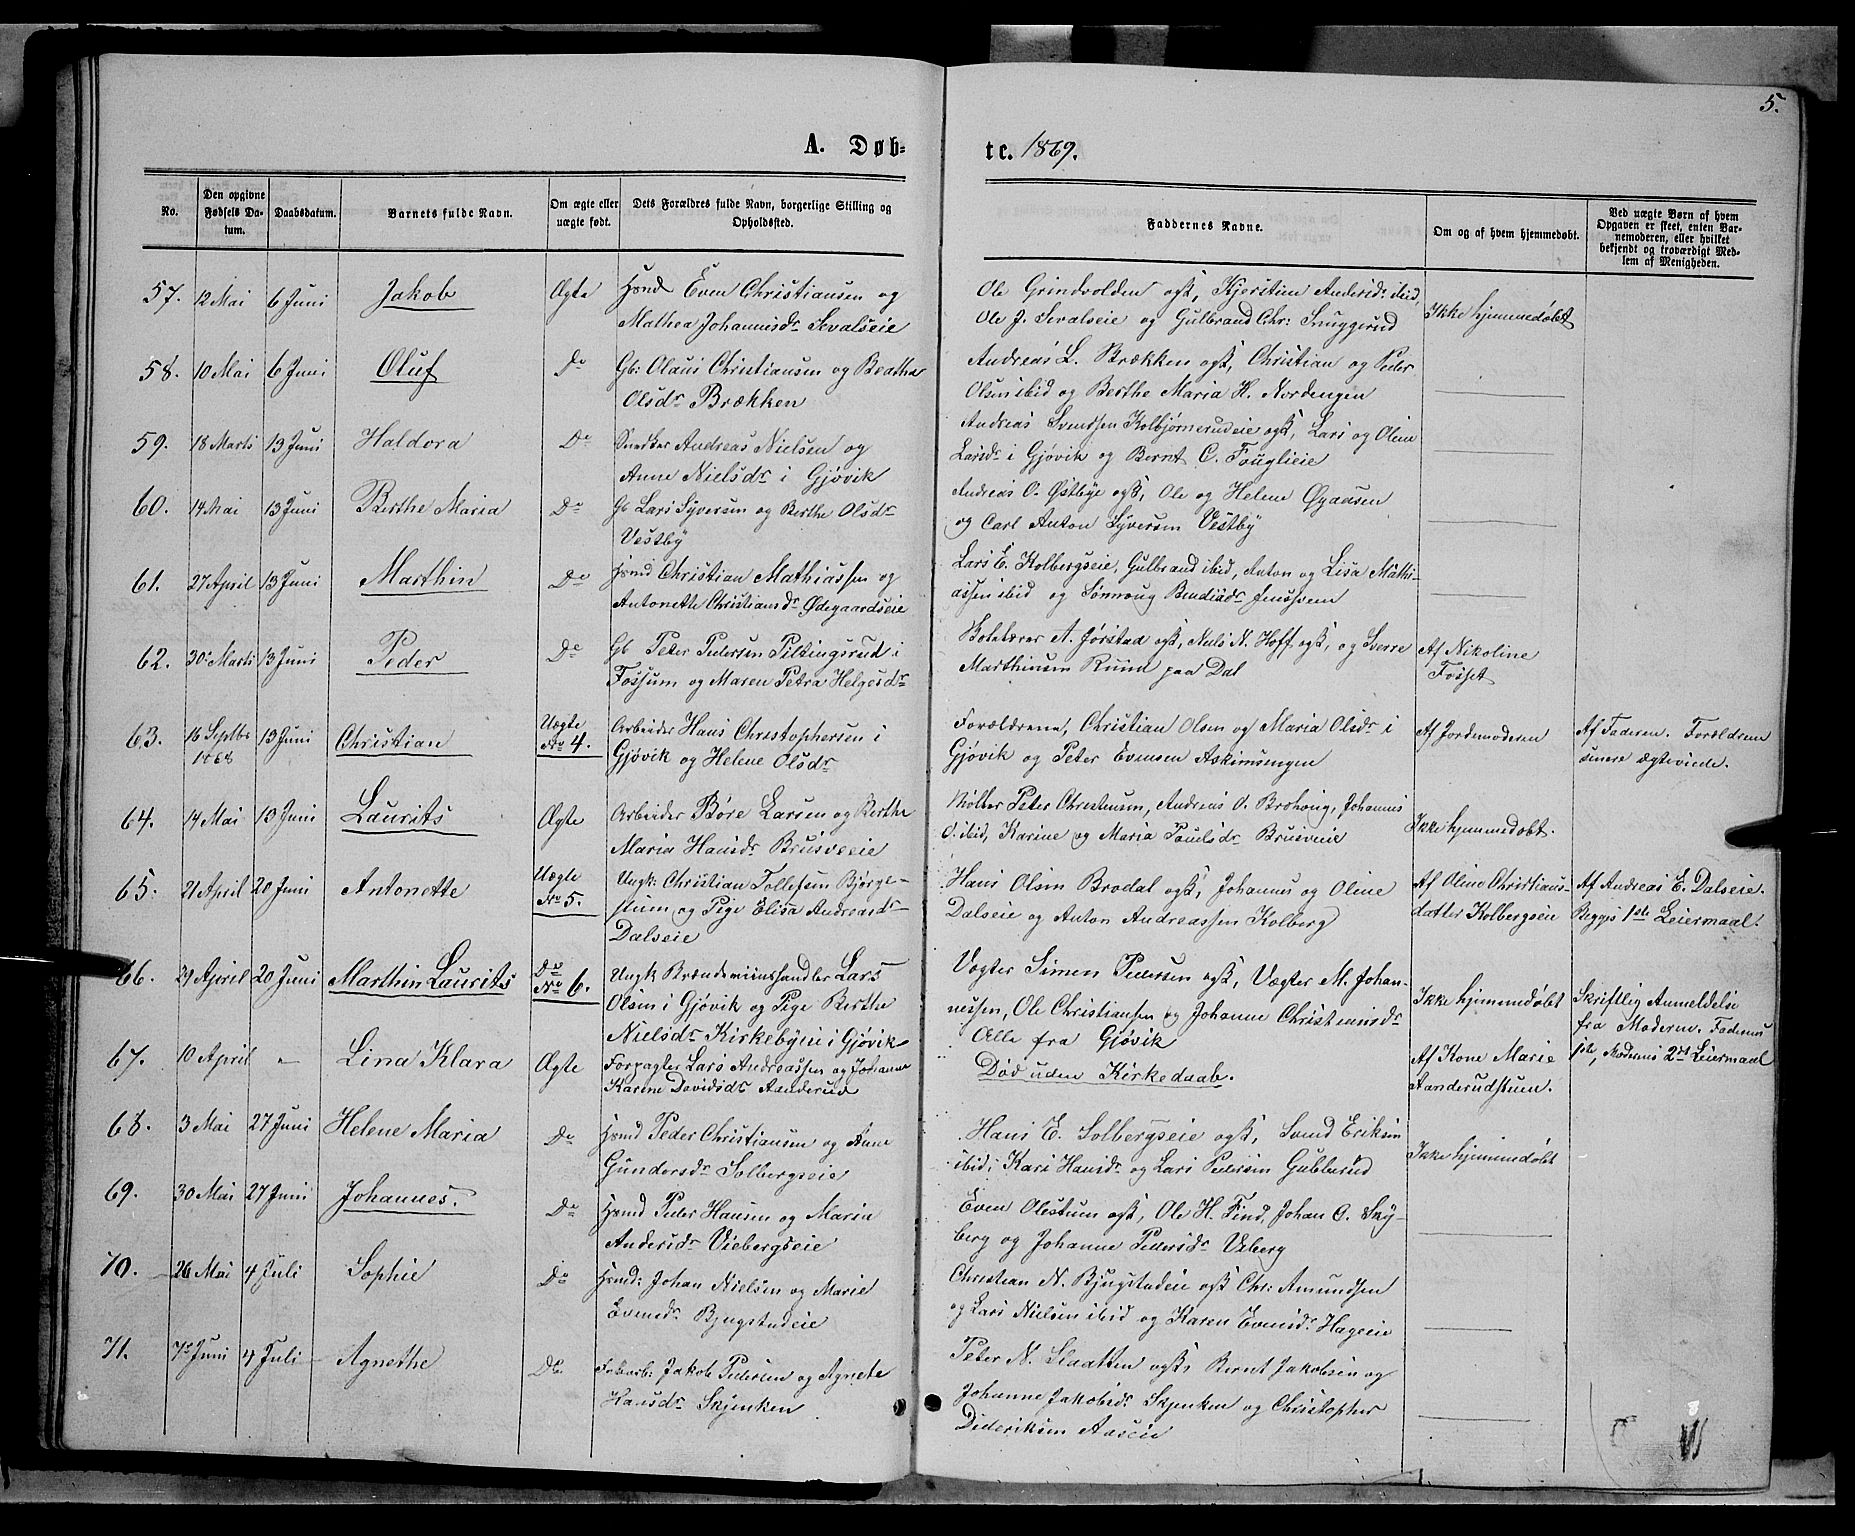 5.
A. Døb-
te. 1869.
No.
Den opgivne Fødsels Da-tum.
Daabsdatum.
Barnets fulde Navn.
Om ægte eller uægte født.
Dets Forældres fulde Navn, borgerlige Stilling og Opholdsted.
Faddernes Navne.
Om og af hvem hjemmedøbt.
Ved uægte Børn af hvem Opgaven er skeet, enten Bar-nemoderen, eller hvilket bekjendt og troværdigt Med-lem af Menigheden.
57. 12 Mai 6 Juni Jakob Ægte Hmd Even Christiansen og
Mathea Johannisdr Sevalseie
Ole Grindvolden ogsk, Kjerstine Andersdr ibid,
Ole J. Sevalseie og Gulbrand Chr: Snuggerud
Ikke hjemmedøbt
58. 10 Mai 6 Juni Oluf Do Gb: Olaus Christiansen og Beathe
Olsdr Brækken
Andreas L. Brækken ogsk, Christian og Peder
Olsen ibid og Berthe Maria H. Nordengen
59. 18 Marts 13 Juni Haldora Do Snedker Andreas Nielsen og
Anne Nielsdr i Gjøvik
Andreas Svendsen Kolbjørnerudeie ogsk, Lars og Oline
Larsdr i Gjøvik og Bernt C. Fouglieie
60. 14 Mai 13 Juni Berthe Maria Do Gb Lars Syversen og Berthe Olsdr
Vestby
Andreas O. Østbye ogsk, Ole og Helene Øgaasen
og Carl Anton Syversen Vestby
61. 27 April 13 Juni Marthin Do Hmd Christian Mathiassen og
Antonette Christiansdr Ødegaardseie
Lars E. Kolbergseie, Gulbrand ibid, Anton og Lisa Mathi-
assen ibid og Sønnoug Bendixdr Jensvem
62. 30 Marts 13 Juni Peder Do Gb Peter Pedersen Piltingsrud i
Fossum og Maren Petra Helgesdr
A. Jørstad ogsk, Niels N. Hoff ogsk, og Sverre
Marthinsen Ruud paa Dal
Af Nikoline
Fosset
63. 16 Septbr 1868 13 Juni Christian Uægte No 4. Arbeider Hans Christophersen i
Gjøvik og Helene Olsdr
Forældrene, Christian Olsen og Maria Olsdr i
Gjøvik og Peter Evensen Askimsengen
Af Jordemoderen
Af Faderen. Forældrene
senere ægteviede.
64. 14 Mai 10 Juni Laurits Ægte Arbeider Børe Larsen og Berthe
Maria Hansdr Brusveeie
Møller Peter Christensen, Andreas O. Brohoug, Johannes
O. ibid, Karine og Maria Paulsdr Brusveie
Ikke hjemmedøbt.
65. 21 April 20 Juni Antonette Uægte No 5. Ungk: Christian Tollefsen Bjørge-
stuen og Pige Elisa Andreasdr
Dalseie
Hans Olsen Brodal ogsk, Johannes og Oline
Dalseie og Anton Andreassen Kolberg
Af Oline Christians-
datter Kolbergseie
Af Andreas E. Dalseie.
Begges 1ste Leiermaal.
66. 21 April 20 Juni Marthin Laurits Do No 6. Ungk Brændeviinshandler Lars
Olsen i Gjøvik og Pige Berthe
Nielsdr Kirkebyeie i Gjøvik
Vægter Simen Pedersen ogsk, Vægter M. Johan-
nessen, Ole Christiansen og Johanne Christiansdr
Alle fra Gjøvik
Ikke hjemmedøbt
Skriftlig Anmeldelse
fra Moderen. Faderens
1ste, Moderens 2det Leiermaal
67. 10 April - Lina Klara Ægte Forpagter Lars Andreassen og Johanne
Karine Davidsdr Aanderud
Død uden Kirkedaab.
Af Kone Marie
Aanderudstuen.
68. 3 Mai 27 Juni Helene Maria Do Hmd Peder Christiansen og Anne
Gundersdr Solbergseie
Hans E. Solbergseie ogsk, Svend Eriksen
ibid, Kari Hansdr og Lars Pedersen Gubberud
Ikke hjemmedøbt
69. 30 Mai 27 Juni Johannes. Do Hmd Peder Hansen og Maria
Andersdr Viebergseie
Even Olestuen ogsk, Ole H. Find, Johan O. Sky-
berg og Johanne Pedersdr Veberg
70. 26 Mai 4 Juli Sophie Do Hmd: Johan Nielsen og Marie
Evensdr Bjugstadeie
Christian N. Bjugstadeie ogsk Chr: Amundsen
og Lars Nielsen ibid og Karen Evensdr Hageeie
71. 7 Juni 4 Juli Agnethe Do Jakob Pedersen og Agnete
Hansdr Skjenken
Peter N. Slaatten ogsk, Bernt Jakobsen og
Johanne Jakobsdr Skjenken og Christopher
Dideriksen Aaseie